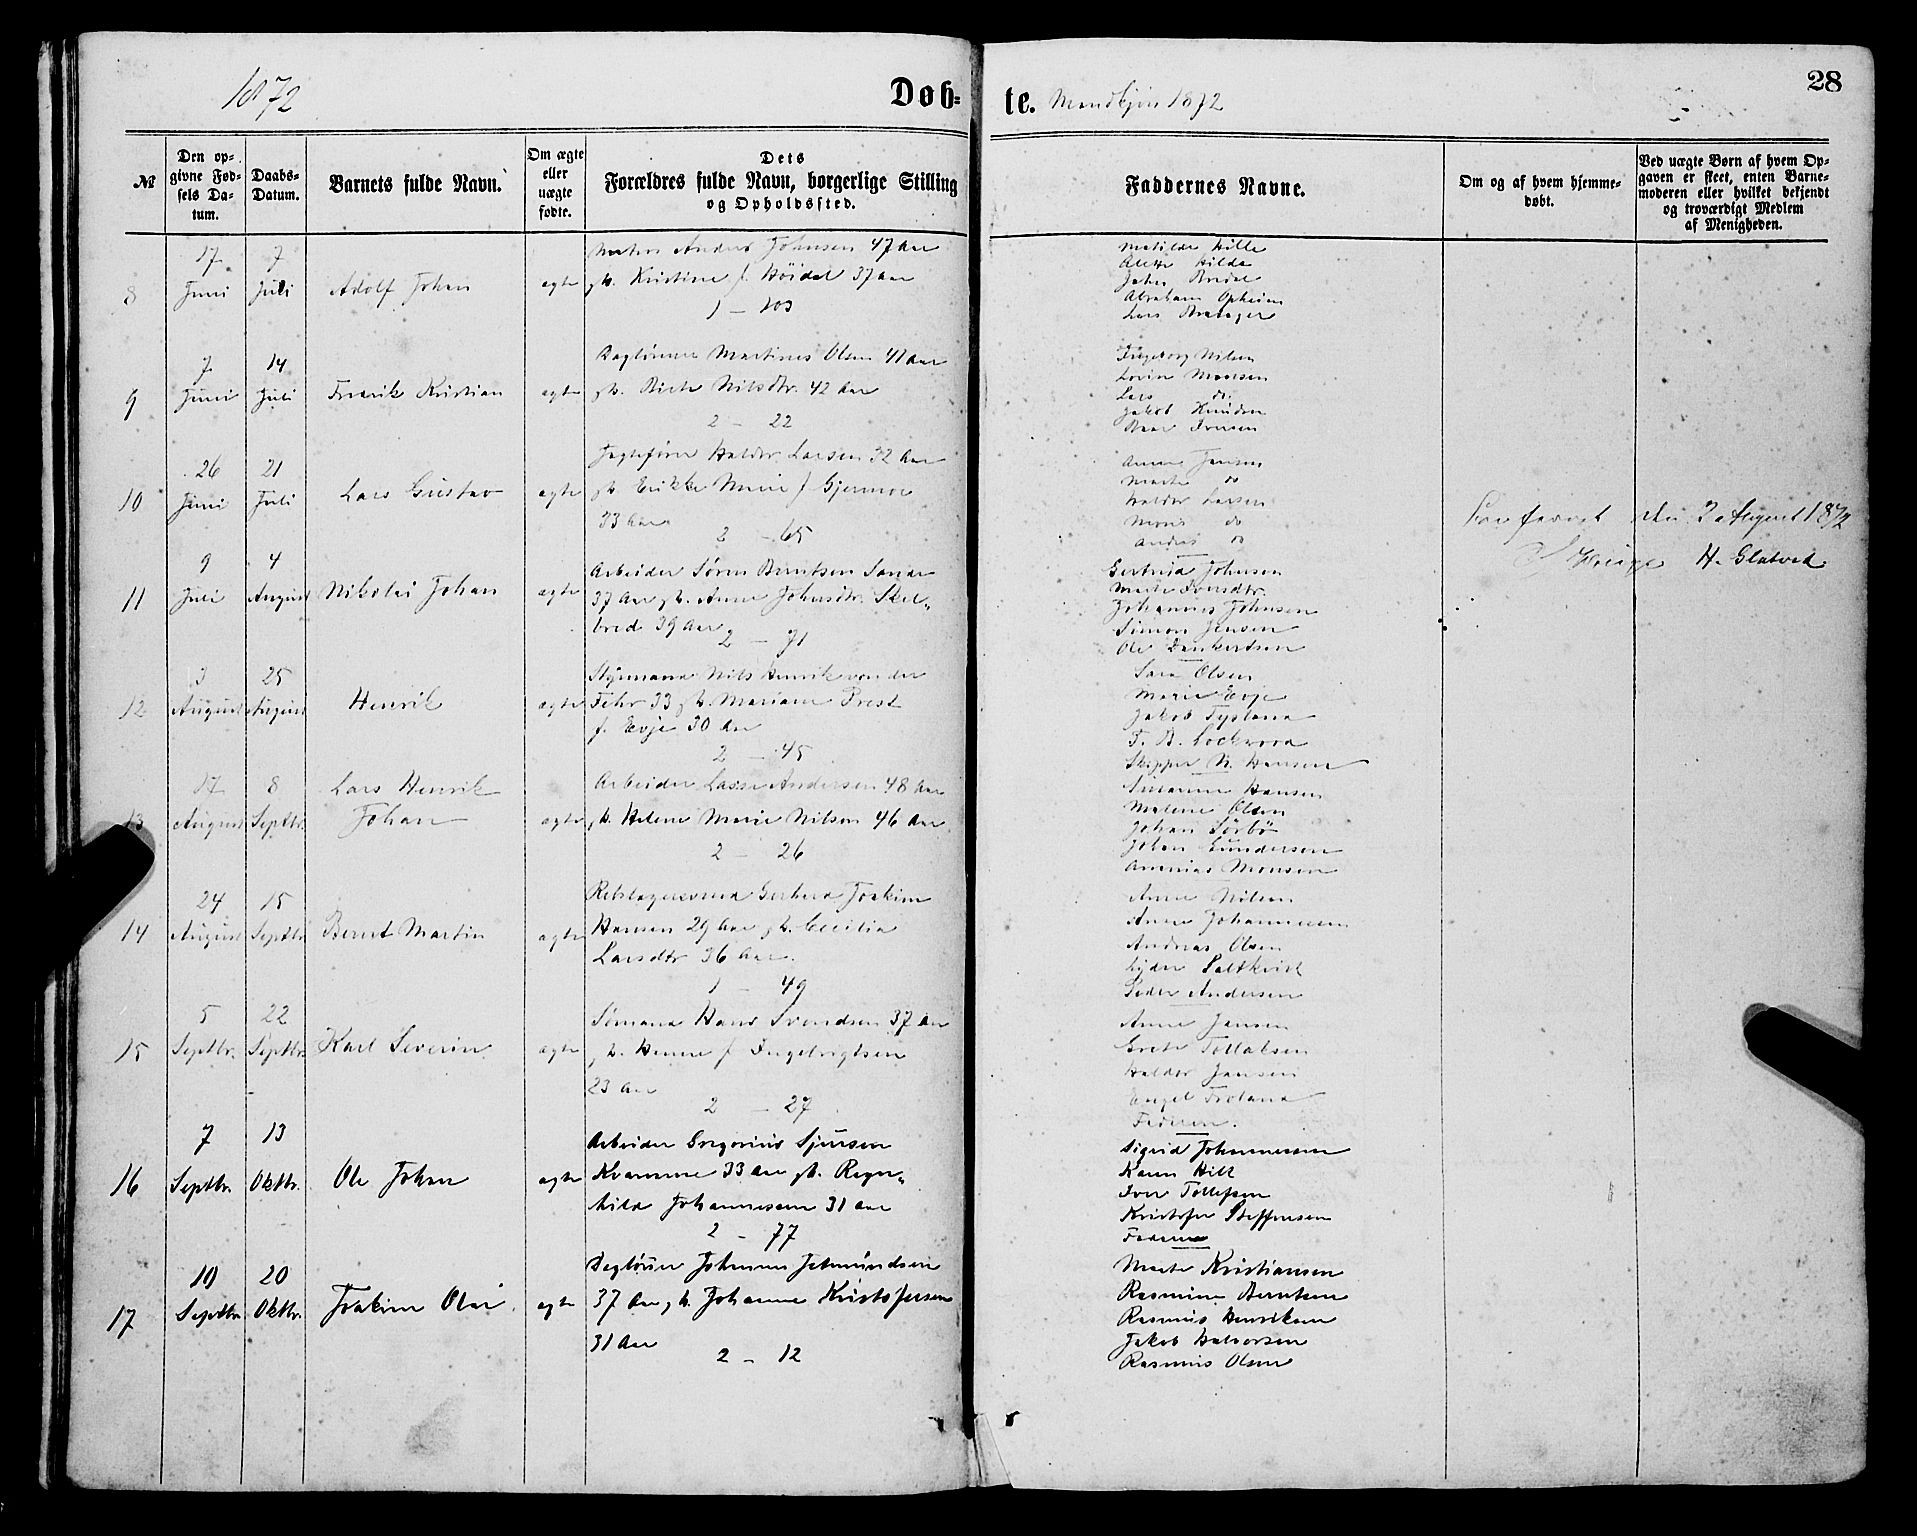 1872
Døb=
te. Mandkjøn 1872
28
№
Den op=
givne Fød=
sels Da=
tum.
Daabs=
Datum.
Barnets fulde Navn.
Om ægte
eller
uægte
fødte.
Dets
Forældres fulde Navn, borgerlige Stilling
og Opholdssted.
Faddernes Navne.
Om og af hvem hjemme=
døbt.
Ved uægte Børn af hvem Op=
gaven er skeet, enten Barne=
moderen eller hvilket bekjendt
og troværdigt Medlem
af Menigheden.
8
17
Juni
7
Juli
Adolf Johan
ægte
Anders Johnsen 47 Aar
Kristine f. Høidal 37 Aar
1 - 103
Matilde Hille
Hilda
Abraham Opheim
Lars
9
7
Juni
14
Juli
Fredrik Kristian
ægte
Dagløner Martinus Olsen 41 Aar
Nilsdtr. 42 Aar
2 - 22
Ingeborg Nilsen
Monsen
Lars do
Jakob Knudsen
Iversen
10
26
Juni
21
Juli
Lars Gustav
ægte
Jagtefører Haldor Larsen 32 Aar
Marie f Gjermoe
33 Aar
2 - 65
Anna Jansen
Marte do
Haldor Larsen
Mons do
Andreas do
den 2 August 1872
H. Glatved
11
9
Juli
4
August
Nikolai Johan
ægte
Arbeider Søren Berntsen
37 Aar Anne Johnsdtr. Skel„
bred 39 Aar
2 - 71
Gertrud Johnsen
Marte Iversdtr.
Johannes Johnsen
Simon Jensen
Ole Dankertsen
12
3
August
25
August
Henrik
ægte
Styrmand Nils Henrik von der
Fehr 33 Mariane Prest
f. Evje 30 Aar
2 - 45
Sara Olsen
Marie Evje
Jakob Tysland
T. B. Lockwood
Skipper N. Hansen
13
17
August
8
Septbr.
Lars Henrik
Johan
ægte
Arbeider Lasse Andersen 48 Aar
Helene Marie Nilsen 46 Aar
2 - 26
Susanne Hansen
Malene Olsen
Johan Sørbø
Johan Gundersen
Ananias Monsen
14
24
August
15
Septbr
Bernt Martin
ægte
Rebslagersvend Gerhard Joakim
Hansen 29 Aar Cecilia
Larsdtr 36 Aar.
1 - 49
Anne Nilsen
Anne Johannessen
Andreas Olsen
Lyder Saltkvist
Peder Andersen
15
5
Septbr.
22
Septbr.
Karl Severin
ægte
Sømand Hans Svendsen 37 Aar
f Ingebrigtsen
23 Aar
2 - 27
Anne Jansen
Grete Tollaksen
Haldor Jansen
Engel Froland
Faderen.
16
7
Septbr.
13
Oktbr.
Ole Johan
ægte
Arbeider Gregorius Sjursen
Kvamme 33 Aar Ragn„
hild Johannesen 31 Aar
2 - 77
Sigrid Johannessen
Karen Hill
Iver Tollefsen
Kristofer Steffensen
Faderen
17
10
Septbr
20
Oktbr.
Joakim Olai
ægte
Dagløner Johannes Jetmundsen
37 Aar Johanne Kristofersen
31 Aar
2 - 12
Marte Kristiansen
Rasmine Berntsen
Rasmus Henriksen
Jakob Halvorsen
Rasmus Olsen